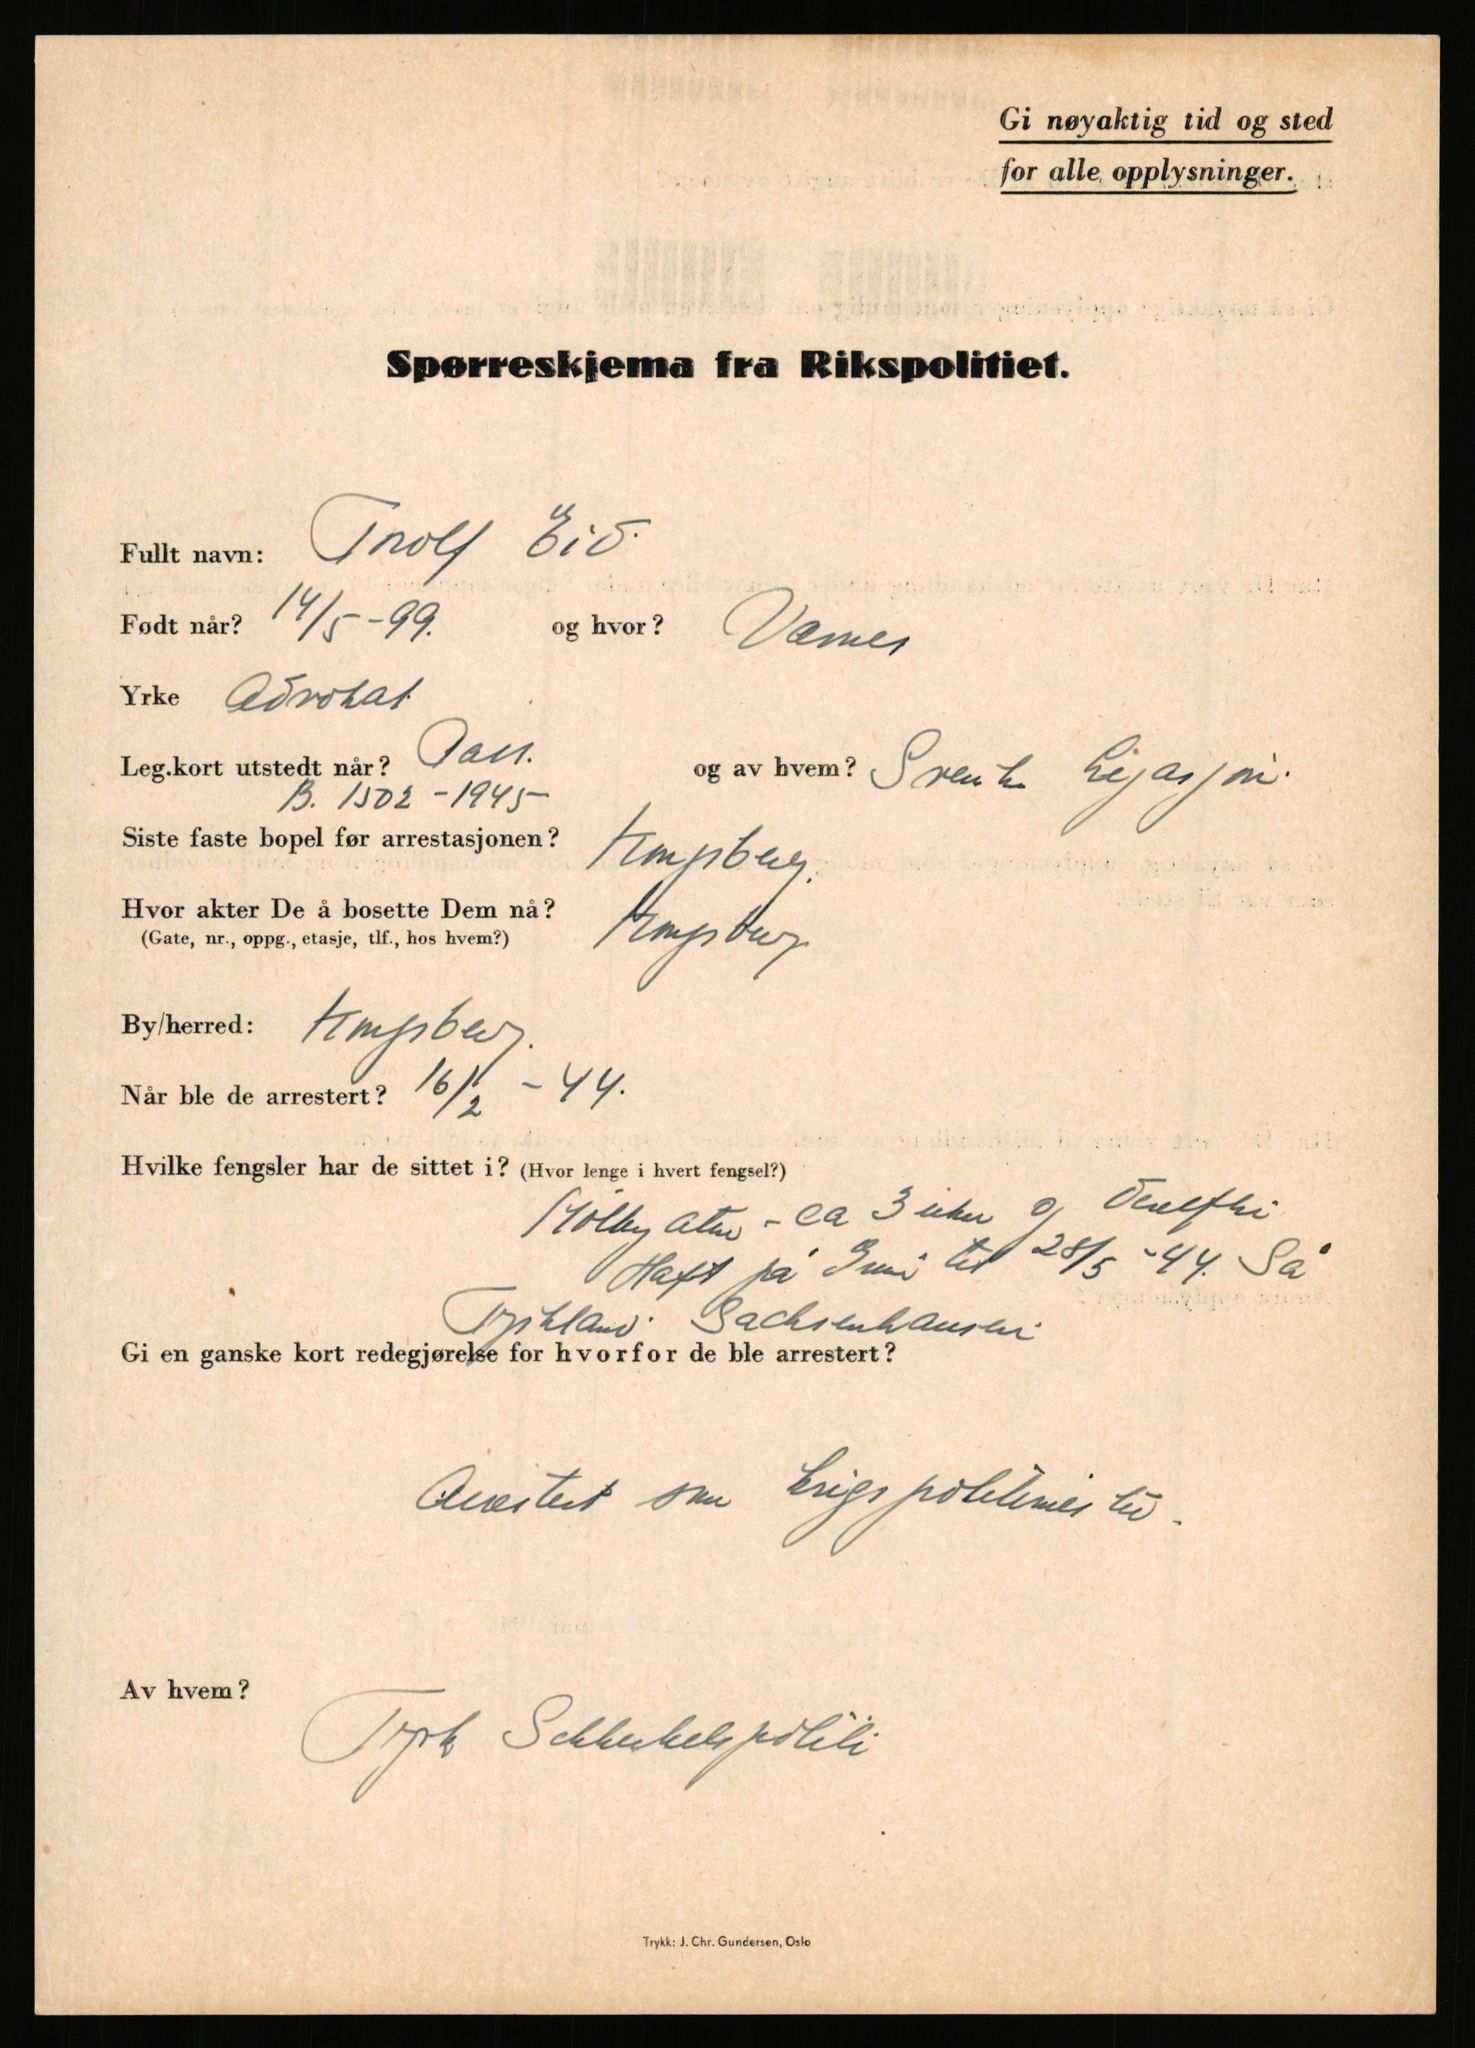 Gi nøyaktig tid og sted
for alle opplysninger.
Spørreskjema fra Rikspolitiet.
Fullt navn: Trolf Eid.
Født når? 14/5-99. og hvor? Værnes
Yrke Advokat
Leg.kort utstedt når? Pass. og av hvem? Svenske Legasjon.
B. 1502-1945
Siste faste bopel før arrestasjonen? Kongsberg.
Hvor akter De å bosette Dem nå? Kongsberg
(Gate, nr., oppg., etasje, tlf., hos hvem?)
By/herred: Kongsberg.
Når ble de arrestert? 16/2 - 44.
Hvilke fengsler har de sittet i? (Hvor lenge i hvert fengsel?)
- ca 3 uker og
Haft på Grini til 28/5-44. Så
Tyskland. Sachsenhausen
Gi en ganske kort redegjørelse for hvorfor de ble arrestert?
Arrestert som krigspolitimester.
Av hvem?
Tysk Sikkerhetspoliti
Trykk: J. Chr. Gundersen, Oslo